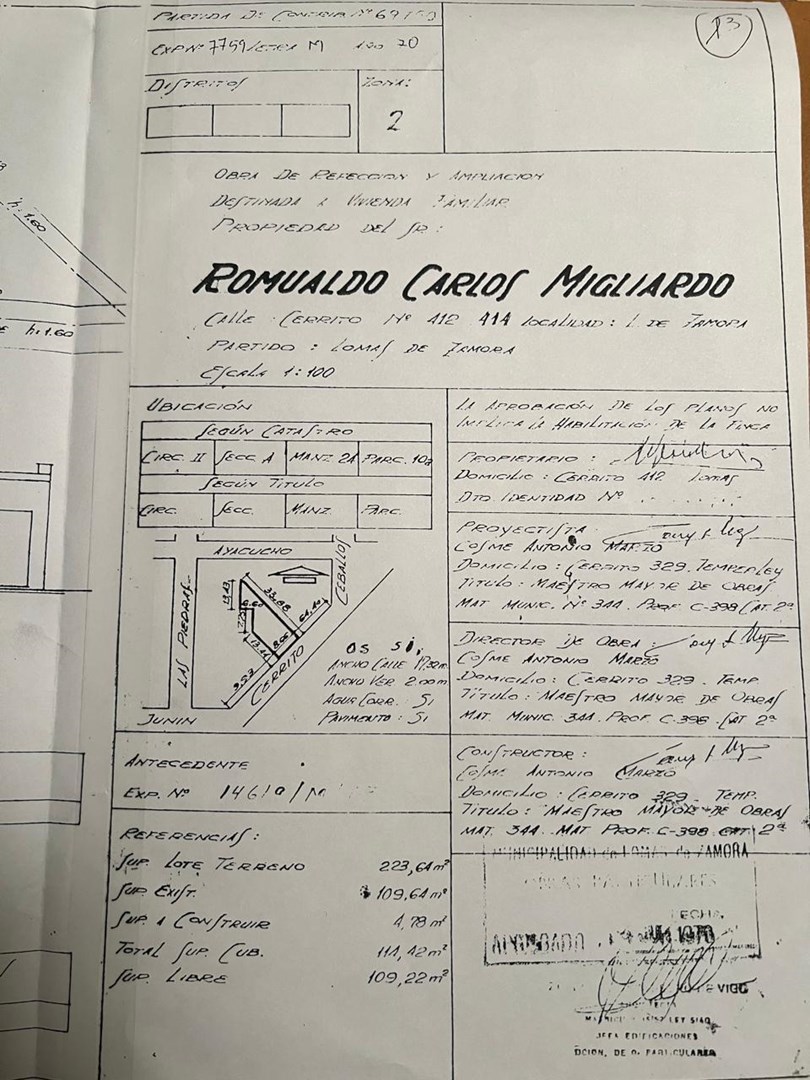 13
PARTIDA DE CONTRIB. Nº 69
EXP Nº 7759/LETRA M 20
DISTRITOS
ZONA:
2
OBRA DE REFECCION Y AMPLIACION
DESTINADA A VIVIENDA FAMILIAR
PROPIEDAD DEL SR:
ROMUALDO CARLOS MIGLIARDO
CALLE: CERRITO Nº 412 414 LOCALIDAD: L. DE ZAMORA
PARTIDO: LOMAS DE ZAMORA
ESCALA 1:100
h:1.60
h:1.60
UBICACIÓN
SEGÚN CATASTRO
CIRC. II SECC A MANZ. 21 PARC. 10a
SEGÚN TITULO
CIRC. SECC. MANZ. PARC.
AYACUCHO
CEBALLOS
LAS PIEDRAS
CERRITO
JUNIN
OS SI.
ANCHO CALLE
ANCHO VER 2.00m
AGUA CORR. SI
PAVIMENTO: SI
ANTECEDENTE
EXP. Nº
REFERENCIAS:
SUP. LOTE TERRENO 223,64m²
SUP EXIST. 109,64m²
SUP. A CONSTRUIR 4,78m²
TOTAL SUP. CUB. 114,42m²
SUP. LIBRE 109,22m²
LA APROBACIÓN DE LOS PLANOS NO
IMPLICA LA HABILITACIÓN DE LA FINCA
PROPIETARIO:
DOMICILIO: CERRITO 412 LOMAS
DTO. IDENTIDAD Nº
PROYECTISTA
COSME ANTONIO MARZO
DOMICILIO: CERRITO 329. TEMPERLEY
TITULO: MAESTRO MAYOR DE OBRAS
MAT. MUNIC. Nº 344. PROF. C-398 CAT. 2ª
DIRECTOR DE OBRA:
COSME ANTONIO MARZO
DOMICILIO: CERRITO 329. TEMP.
TITULO: MAESTRO MAYOR DE OBRAS
MAT. MUNIC. 344. PROF. C-398. CAT 2ª
CONSTRUCTOR:
COSME ANTONIO MARZO
DOMICILIO: CERRITO 329. TEMP.
TITULO: MAESTRO MAYOR DE OBRAS
MAT. 344. MAT PROF. C-398 CAT. 2ª
MUNICIPALIDAD de LOMAS de ZAMORA
OBRAS PARTICULARES
FECHA
1970
JEFA EDIFICACIONES
DCION. DE O. PARTICULARES